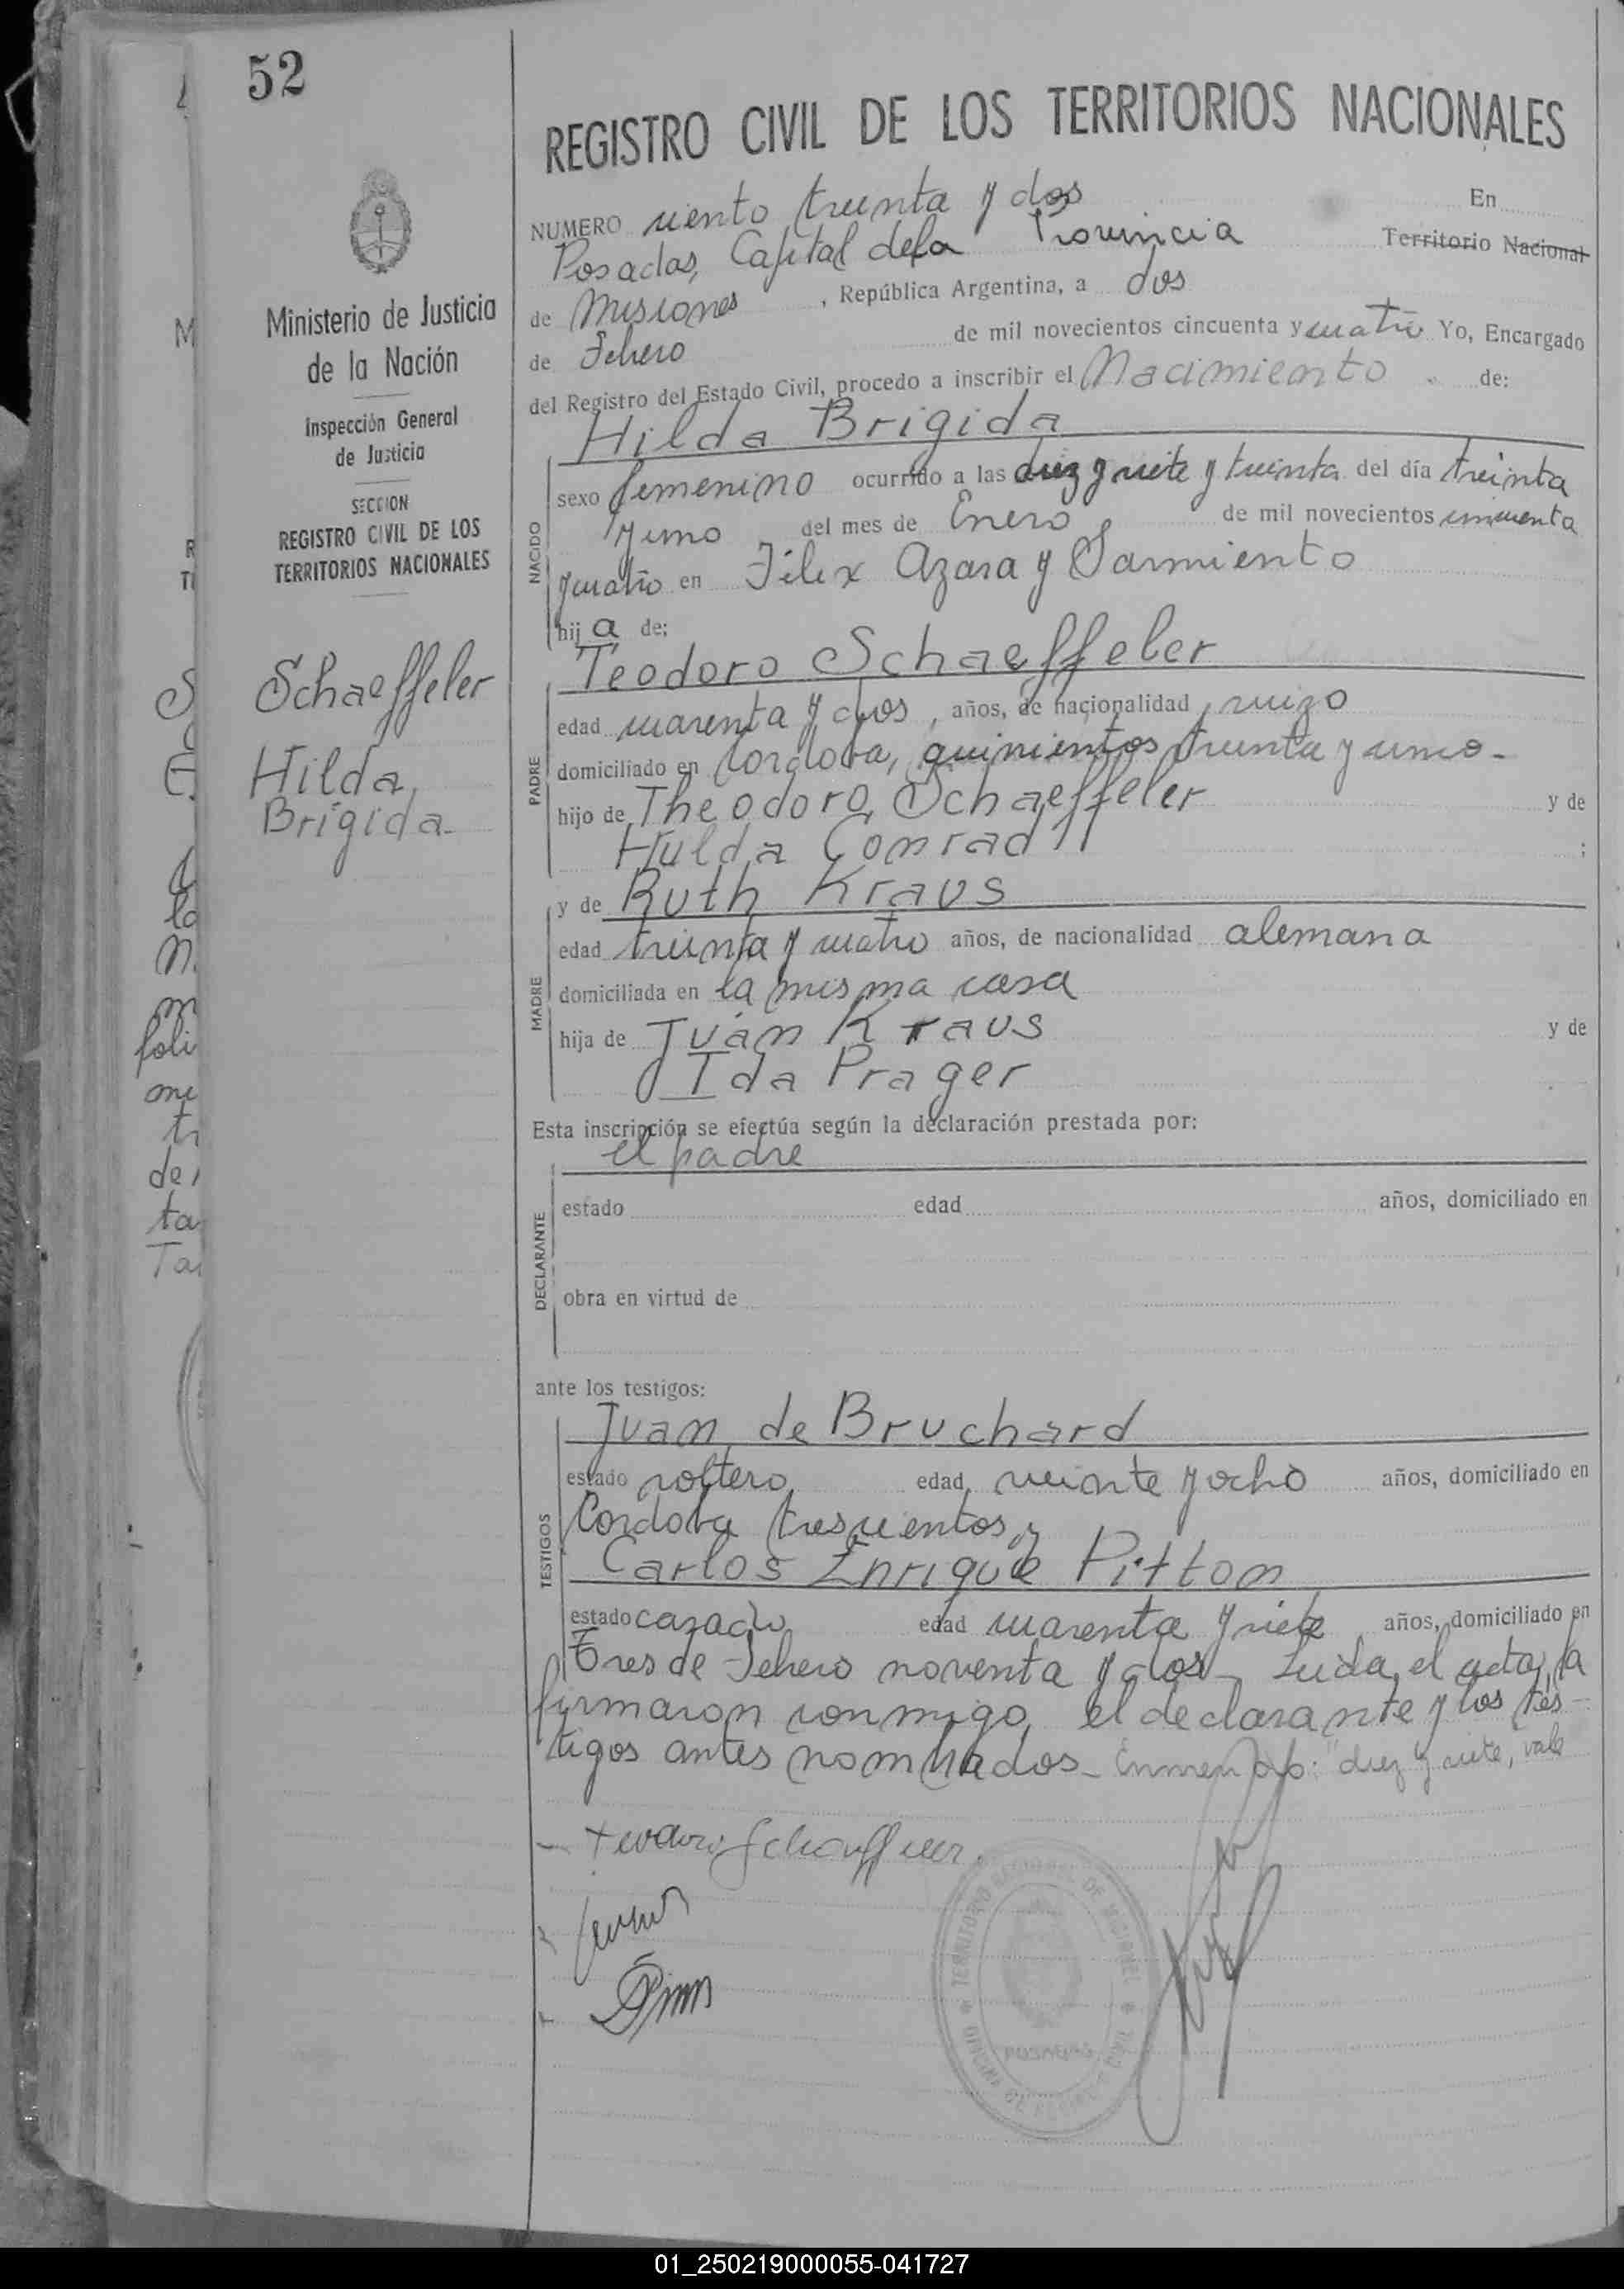 52
REGISTRO CIVIL DE LOS TERRITORIOS NACIONALES
NUMERO ciento treinta y dos En
Posadas, Capital de la Provincia Territorio Nacional
de Misiones, República Argentina, a dos
de Febrero de mil novecientos cincuenta y cuatro Yo, Encargado
del Registro del Estado Civil, procedo a inscribir el Nacimiento de:
Hilda Brigida
NACIDO
sexo femenino ocurrido a las diez y siete y treinta del día treinta
y uno del mes de Enero de mil novecientos cincuenta
y cuatro en Félix Azara y Sarmiento
hij a de:
Teodoro Schaeffeler
PADRE
edad cuarenta y dos, años, de nacionalidad suizo
domiciliado en Cordoba, quinientos treinta y uno-
hijo de Theodoro Schaeffeler y de
Hulda Conrad ;
y de Ruth Kraus
MADRE
edad treinta y cuatro años, de nacionalidad alemana
domiciliada en la misma casa
hija de Juán Kraus y de
Ida Prager
Esta inscripción se efectúa según la declaración prestada por:
el padre
DECLARANTE
estado edad años, domiciliado en
obra en virtud de
ante los testigos:
Juan de Bruchard
TESTIGOS
estado soltero, edad veinte y ocho años, domiciliado en
Cordoba trescientos y
Carlos Enrique Pitton
estado casado edad cuarenta y siete años, domiciliado en
Tres de Febrero noventa y dos- Leida, el acta, la
firmaron conmigo, el declarante y los tes-
tigos antes nombrados- Enmendado: "diez y siete, vale
Ministerio de Justicia
de la Nación
Inspección General
de Justicia
SECCION
REGISTRO CIVIL DE LOS
TERRITORIOS NACIONALES
Schaeffeler
Hilda
Brigida-
POSADAS
01_250219000055-041727